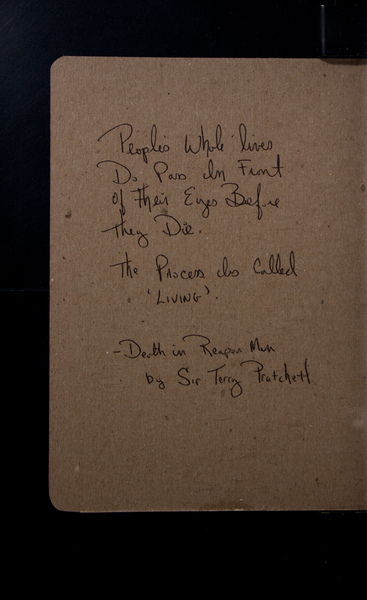 People's Whole lives
Do Pass In Front
Of Their Eyes Before
They Die.
The Process Is Called
'LIVING'.
-Death in Reaper Man
by Sir Terry Pratchett